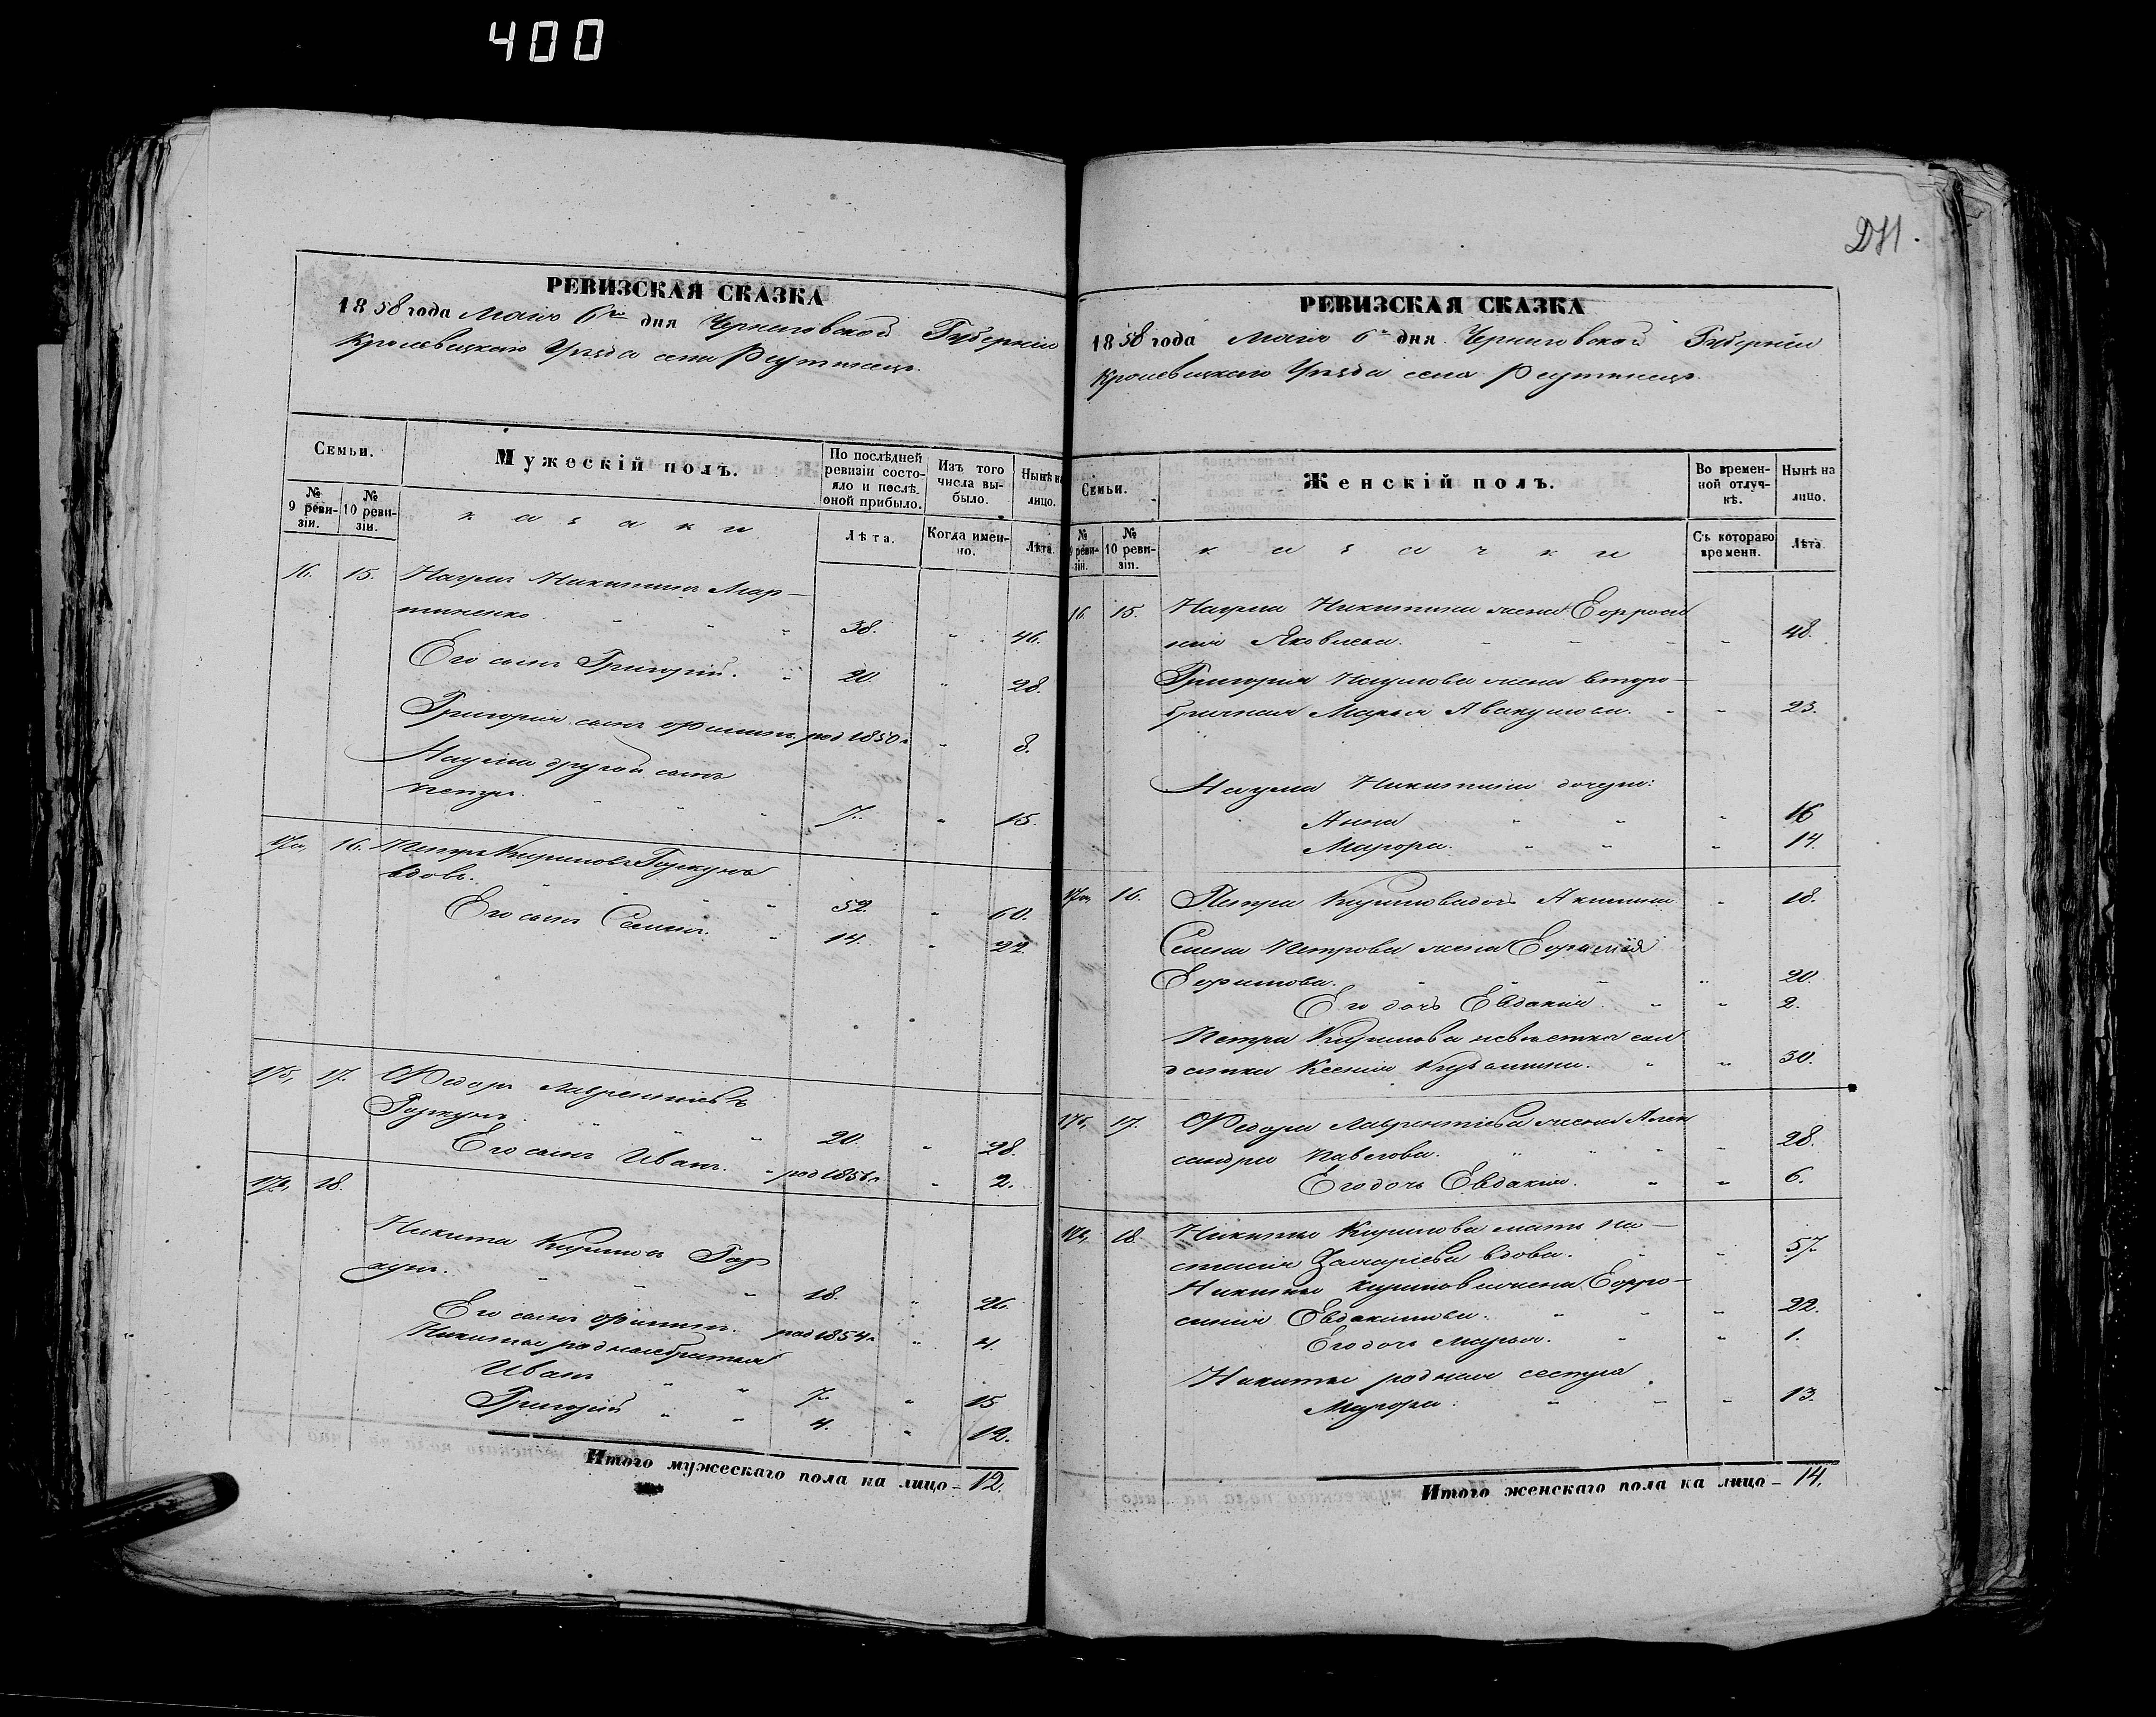 400
РЕВИЗСКАЯ СКАЗКА
1858 года Маія 6го дня Черниговской Губерніи
Кролевецкаго Уѣзда села Реутинец
Семьи.
Мужескій полъ.
По послѣдней ревизіи состояло и послѣ оной прибыло.
Изъ того числа выбыло.
Нынѣ на лицо.
№ 9 ревизіи.
№ 10 ревизіи.
казаки
Лѣта.
Когда именно.
Лѣта.
16. 15. Наумъ Никитинъ Мар-
тиненко 38. 46.
Его сынъ Григорій. 20. 28.
Григорія сынъ Филипъ род 1850 г 8.
Наума другой сынъ
Петръ. 7. 15.
17а, 16. Петръ Кириловъ Горкунъ
вдовъ. 52. 60.
Его сынъ Семенъ. 14. 22.
17б, 17. Федоръ Лаврентіевъ
Горкунъ 20. 28.
Его сынъ Иванъ. род 1856 г 2.
17в, 18.
Никита Кириловъ Гор
кунъ. 18. 26.
Его сынъ Филипъ. род 1854 г 4.
Никиты родные братья
Иванъ 7. 15
Григорій 4. 12.
Итого мужескаго пола на лицо - 12.
РЕВИЗСКАЯ СКАЗКА
1858 года Маія 6 дня Черниговской Губерніи
Кролевецкаго Уѣзда села Реутинецъ
Семьи.
Женскій полъ.
Во временной отлучкѣ.
Нынѣ на лицо.
№ 9 ревизіи.
№ 10 ревизіи.
казачки
Съ котораго времени.
Лѣта
16. 15. Наума Никитина жена Ефроси
нія Яковлева. 48.
Григорія Наумова жена второ-
брачная Марья Авакумова. 23.
Наума Никитина дочери:
Анна 16
Марфа. 14.
17а, 16. Петра Кирилова дочь Акилина 18.
Семена Петрова жена Ефимія
Ефимова. 20.
Его дочь Евдакія. 2.
Петра Кирилова невѣстка сол
датка Ксенія Кузьмина. 30.
17б, 17. Федора Лаврентіева жена Алек
сандра Павлова. 28.
Его дочь Евдакія. 6.
17в, 18. Никиты Кирилова мать На-
стасія Захаріева вдова. 57.
Никиты Кирилова жена Ефро-
синія Евдакимова. 22.
Его дочь Марья. 1.
Никиты родная сестра
Марфа. 13.
Итого женскаго пола на лицо - 14.